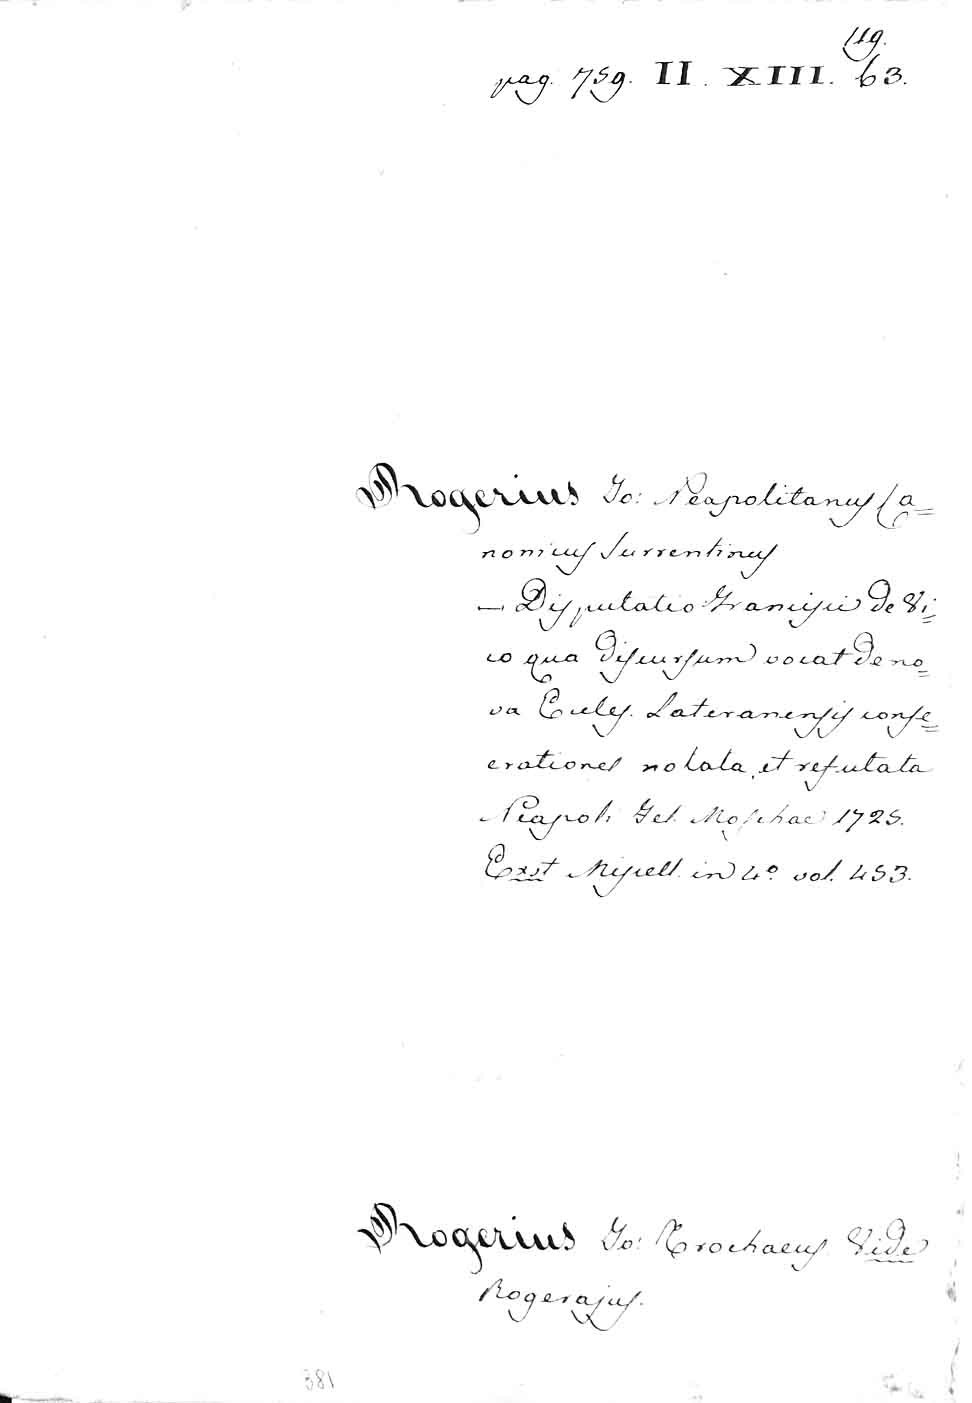 119.
pag. 759. II. XIII. 63.
Rogerius Jo: Neapolitanus Ca=
nonicus Surrentinus
— Disputatio Francisci De Vi=
co qua Discursum vocat De no=
va Eccles. Lateranensis conse=
crationes notata, et refutata
Neapoli Fel. Moschae 1725.
Exst Miscell. in 4º. vol. 453.
Rogerius Jo: Trochaeus Vide
Rogerajus.
381